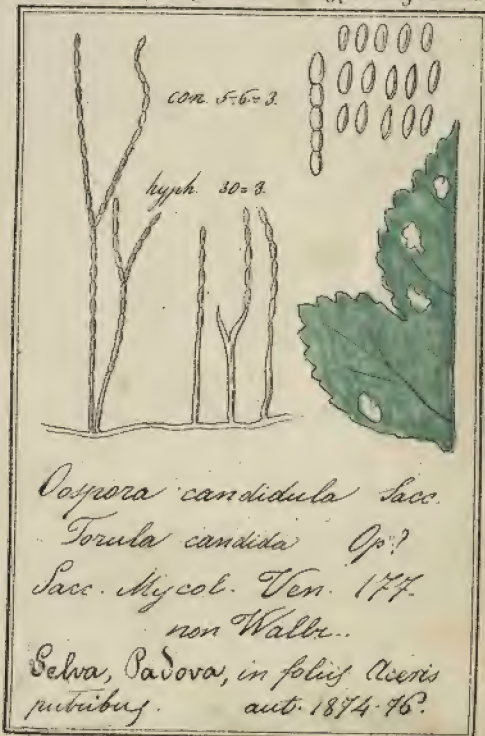 con. 5-6=3.
hyph. 30=3.
Oospora candidula Sacc.
Torula candida Op?
Sacc. Mycol. Ven. 177.
non Wallr..
Selva, Padova, in foliis Aceris
putribus. aut. 1874-76.